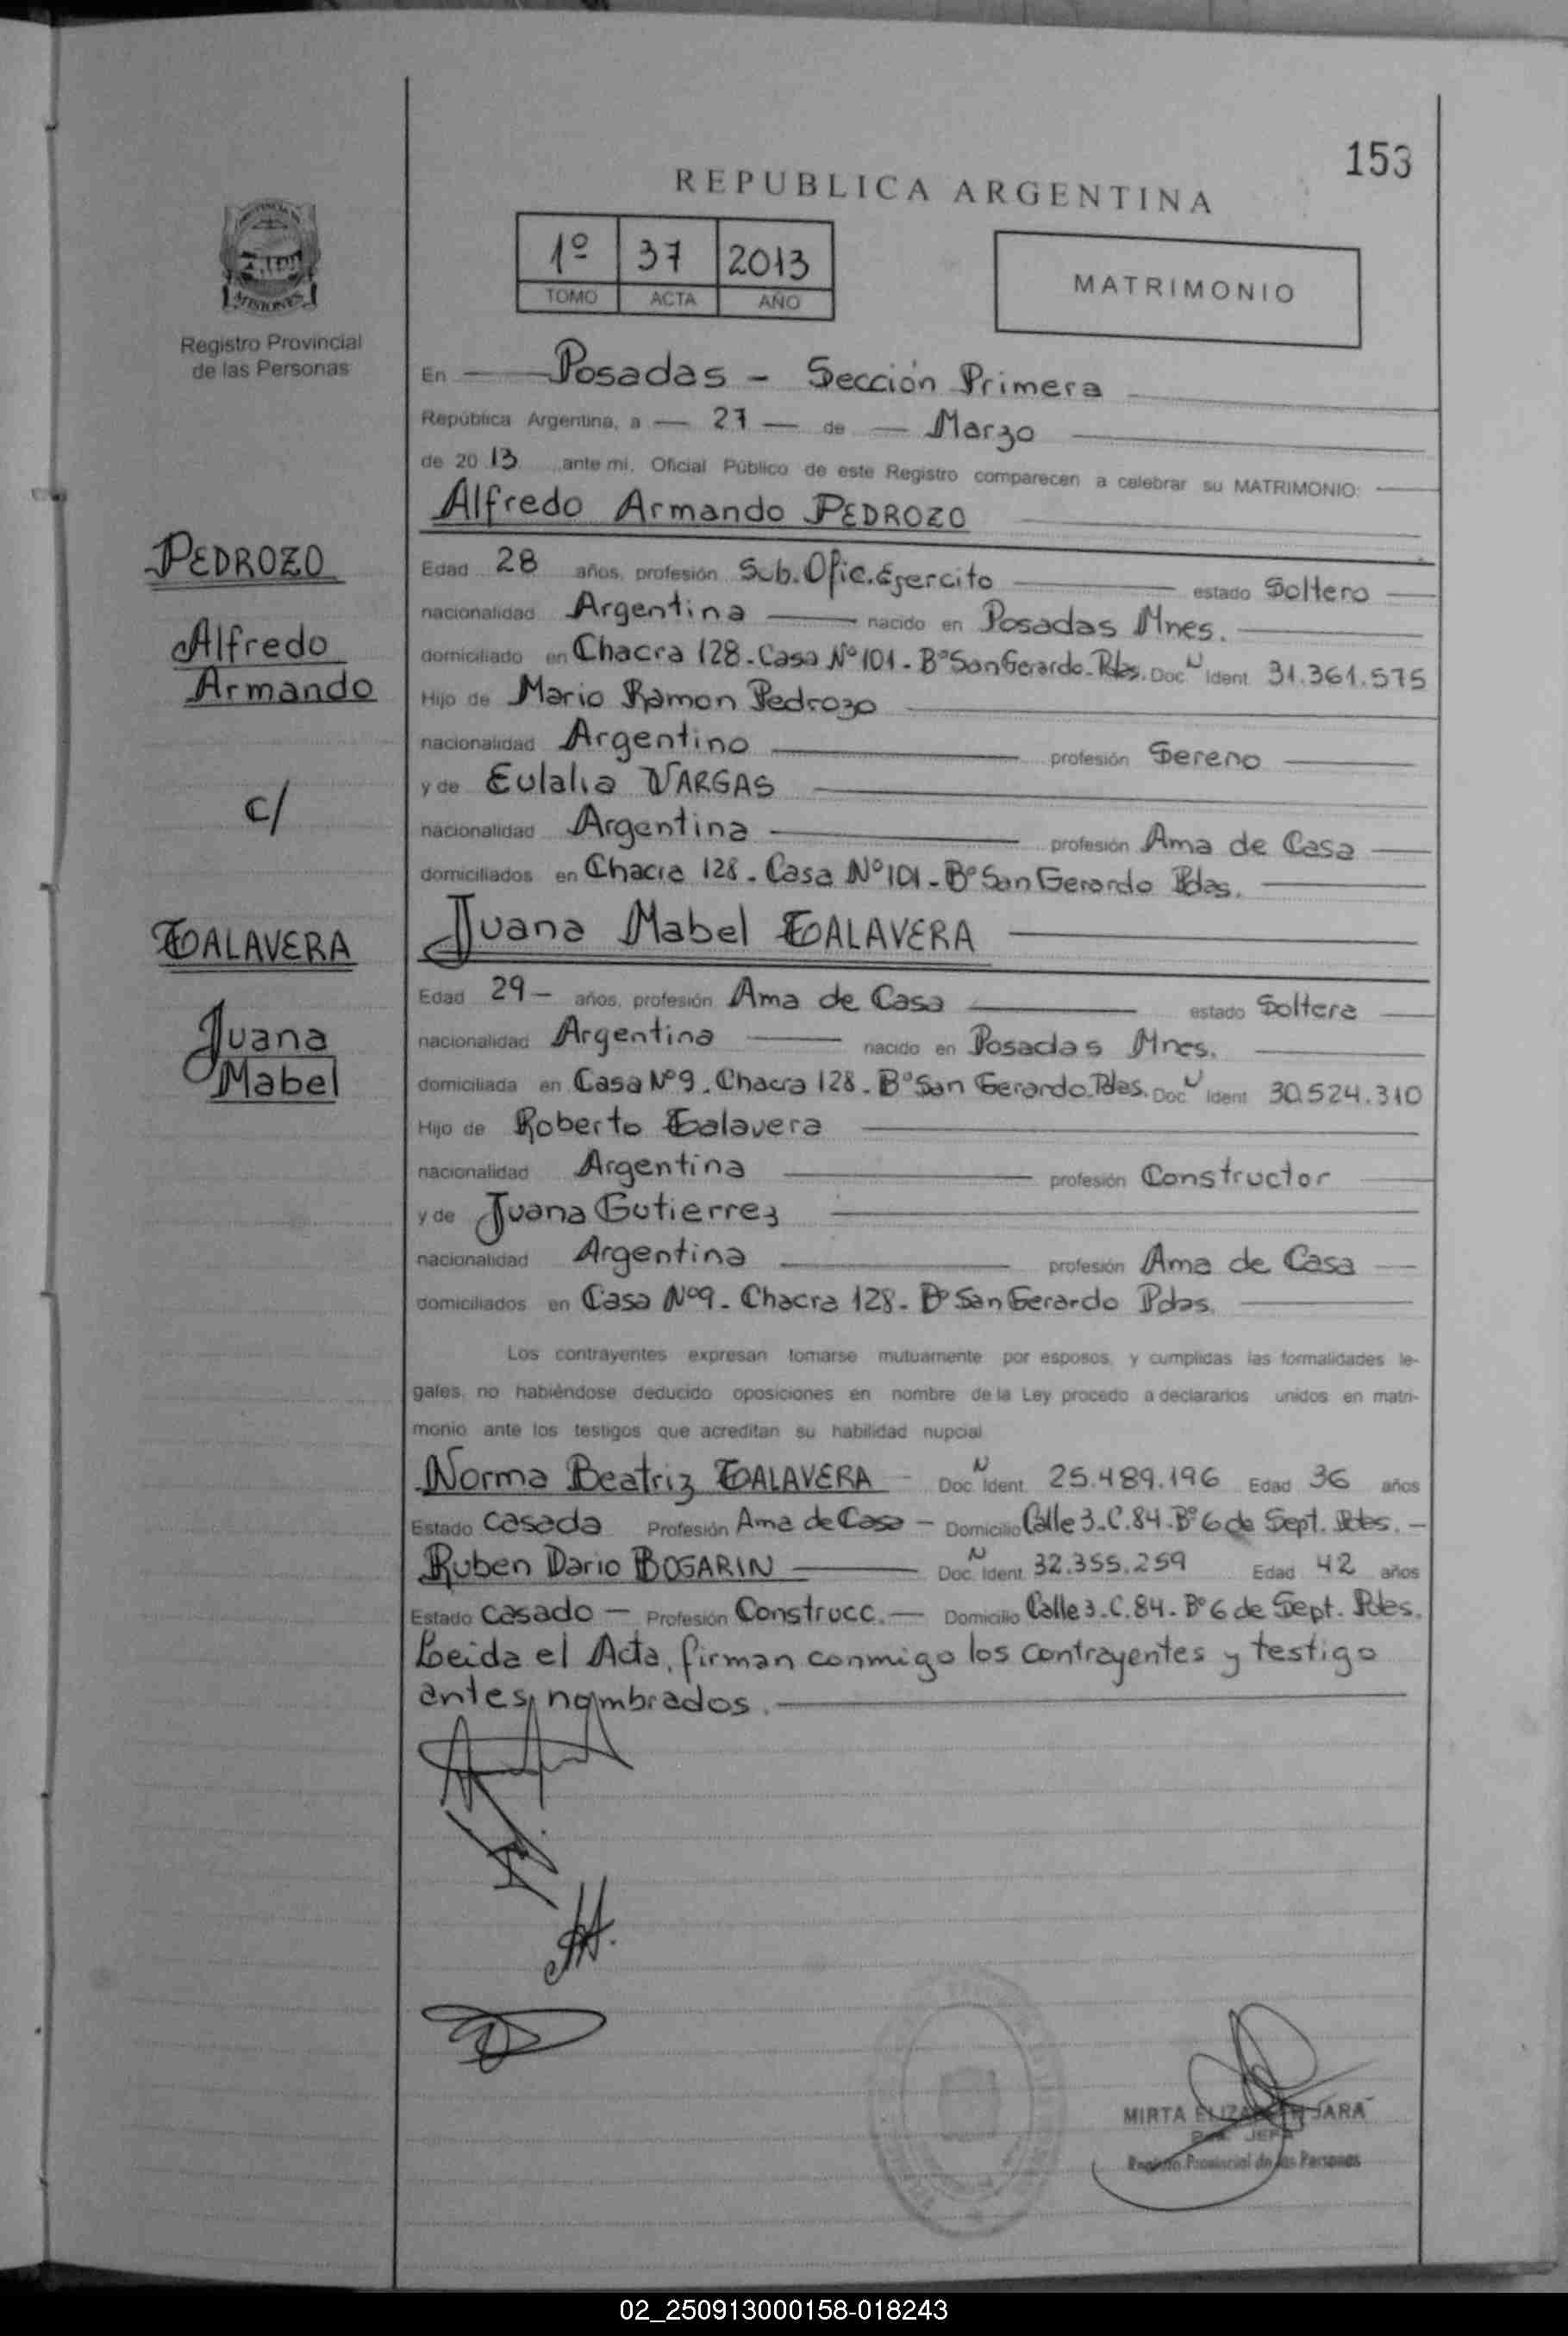 153
REPUBLICA ARGENTINA
1º 37 2013
TOMO ACTA AÑO
MATRIMONIO
MISIONES
Registro Provincial
de las Personas
En Posadas - Sección Primera
República Argentina, a 27 de Marzo
de 2013 ante mi, Oficial Público de este Registro comparecen a celebrar su MATRIMONIO:
Alfredo Armando PEDROZO
PEDROZO
Alfredo
Armando
c/
TALAVERA
Juana
Mabel
Edad 28 años, profesión Sub.Ofic.Ejercito estado Soltero
nacionalidad Argentina nacido en Posadas Mnes.
domiciliado en Chacra 128-Casa Nº101-BºSanGerardo-Pdas. Doc N Ident 31.361.575
Hijo de Mario Ramon Pedrozo
nacionalidad Argentino profesión Sereno
y de Eulalia VARGAS
nacionalidad Argentina profesión Ama de Casa
domiciliados en Chacra 128-Casa Nº101-BºSanGerardo Pdas.
Juana Mabel TALAVERA
Edad 29- años, profesión Ama de Casa estado Soltera
nacionalidad Argentina nacido en Posadas Mnes.
domiciliada en Casa Nº9-Chacra 128-BºSan Gerardo-Pdas. Doc N Ident 30.524.310
Hijo de Roberto Talavera
nacionalidad Argentina profesión Constructor
y de Juana Gutierrez
nacionalidad Argentina profesión Ama de Casa
domiciliados en Casa Nº9-Chacra 128-BºSanGerardo Pdas.
Los contrayentes expresan tomarse mutuamente por esposos, y cumplidas las formalidades le-
gales, no habiéndose deducido oposiciones en nombre de la Ley procedo a declararlos unidos en matri-
monio ante los testigos que acreditan su habilidad nupcial
Norma Beatriz TALAVERA - Doc. N Ident. 25.489.196 Edad 36 años
Estado Casada Profesión Ama de Casa - Domicilio Calle 3-C.84-Bº6 de Sept. Pdas. -
Ruben Dario BOGARIN Doc. N Ident. 32.355.259 Edad 42 años
Estado Casado - Profesión Construcc. - Domicilio Calle 3-C.84-Bº6 de Sept. Pdas.
Leida el Acta, firman conmigo los contrayentes y testigo
antes nombrados.
MIRTA ELIZABETH JARA
JEFA
Registro Provincial de las Personas
02_250913000158-018243